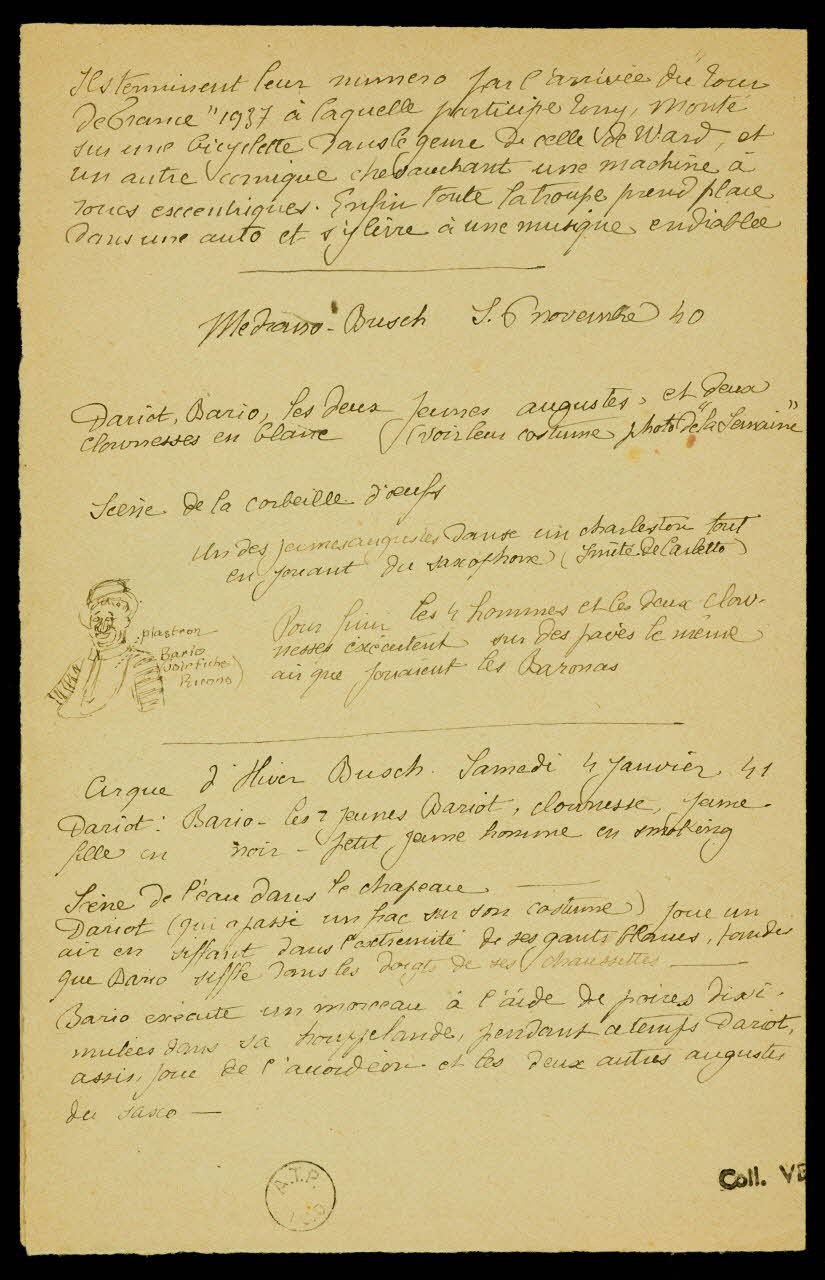 Ils terminent leur numero par l'arrivée du "Tour
de France" 1937 à laquelle participe Tony, monté
sur une bicyclette dans le genre de celle de Ward, et
un autre comique chevauchant une machine à
roues excentriques. Enfin toute la troupe prend place
dans une auto et s'y livre à une musique endiablée
Medrano-Busch S. 6 novembre 40
Dariot, Bario, les deux jeunes augustes, et deux
clownesses en blanc (voir leur costume photo de "la Semaine"
Scène de la corbeille d'œufs
Un des jeunes augustes danse un charleston tout
en jouant du saxophone (Imité de Carletto)
Pour finir les 4 hommes et les deux clow-
nesses exécutent sur des pavés le même
air que jouaient les Baronas
plastron
Bario
(voir fiche
Cirque d'Hiver Busch. Samedi 4 janvier 41
Dariot: Bario - les 2 jeunes Bariot, clownesse, jeune
fille en noir - petit jeune homme en smoking
Scène de l'eau dans le chapeau
Dariot (qui a passé un frac sur son costume) joue un
air en siffant dans l'extremité de ses gants blancs, tandis
que Bario siffle dans les doigts de ses chaussettes
Bario exécute un morceau à l'aide de poires dissi-
mulées dans sa houppelande, pendant ce temps Dariot,
assis, joue de l'accordéon et les deux autres augustes
du saxo
A.T.P.
Coll. VB